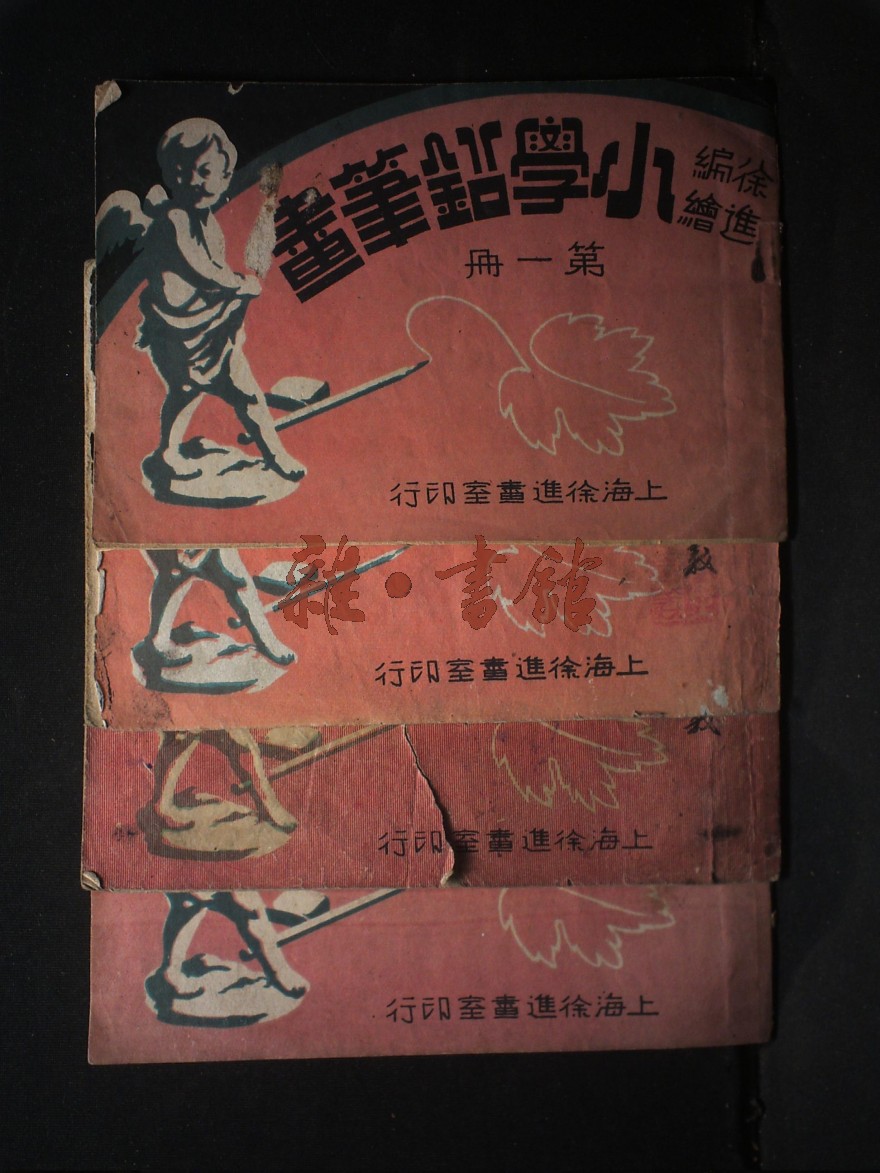 徐進
編繪
小學鉛筆畫
第一冊
上海徐進畫室印行
教
雜·書館
上海徐進畫室印行
上海徐進畫室印行
上海徐進畫室印行